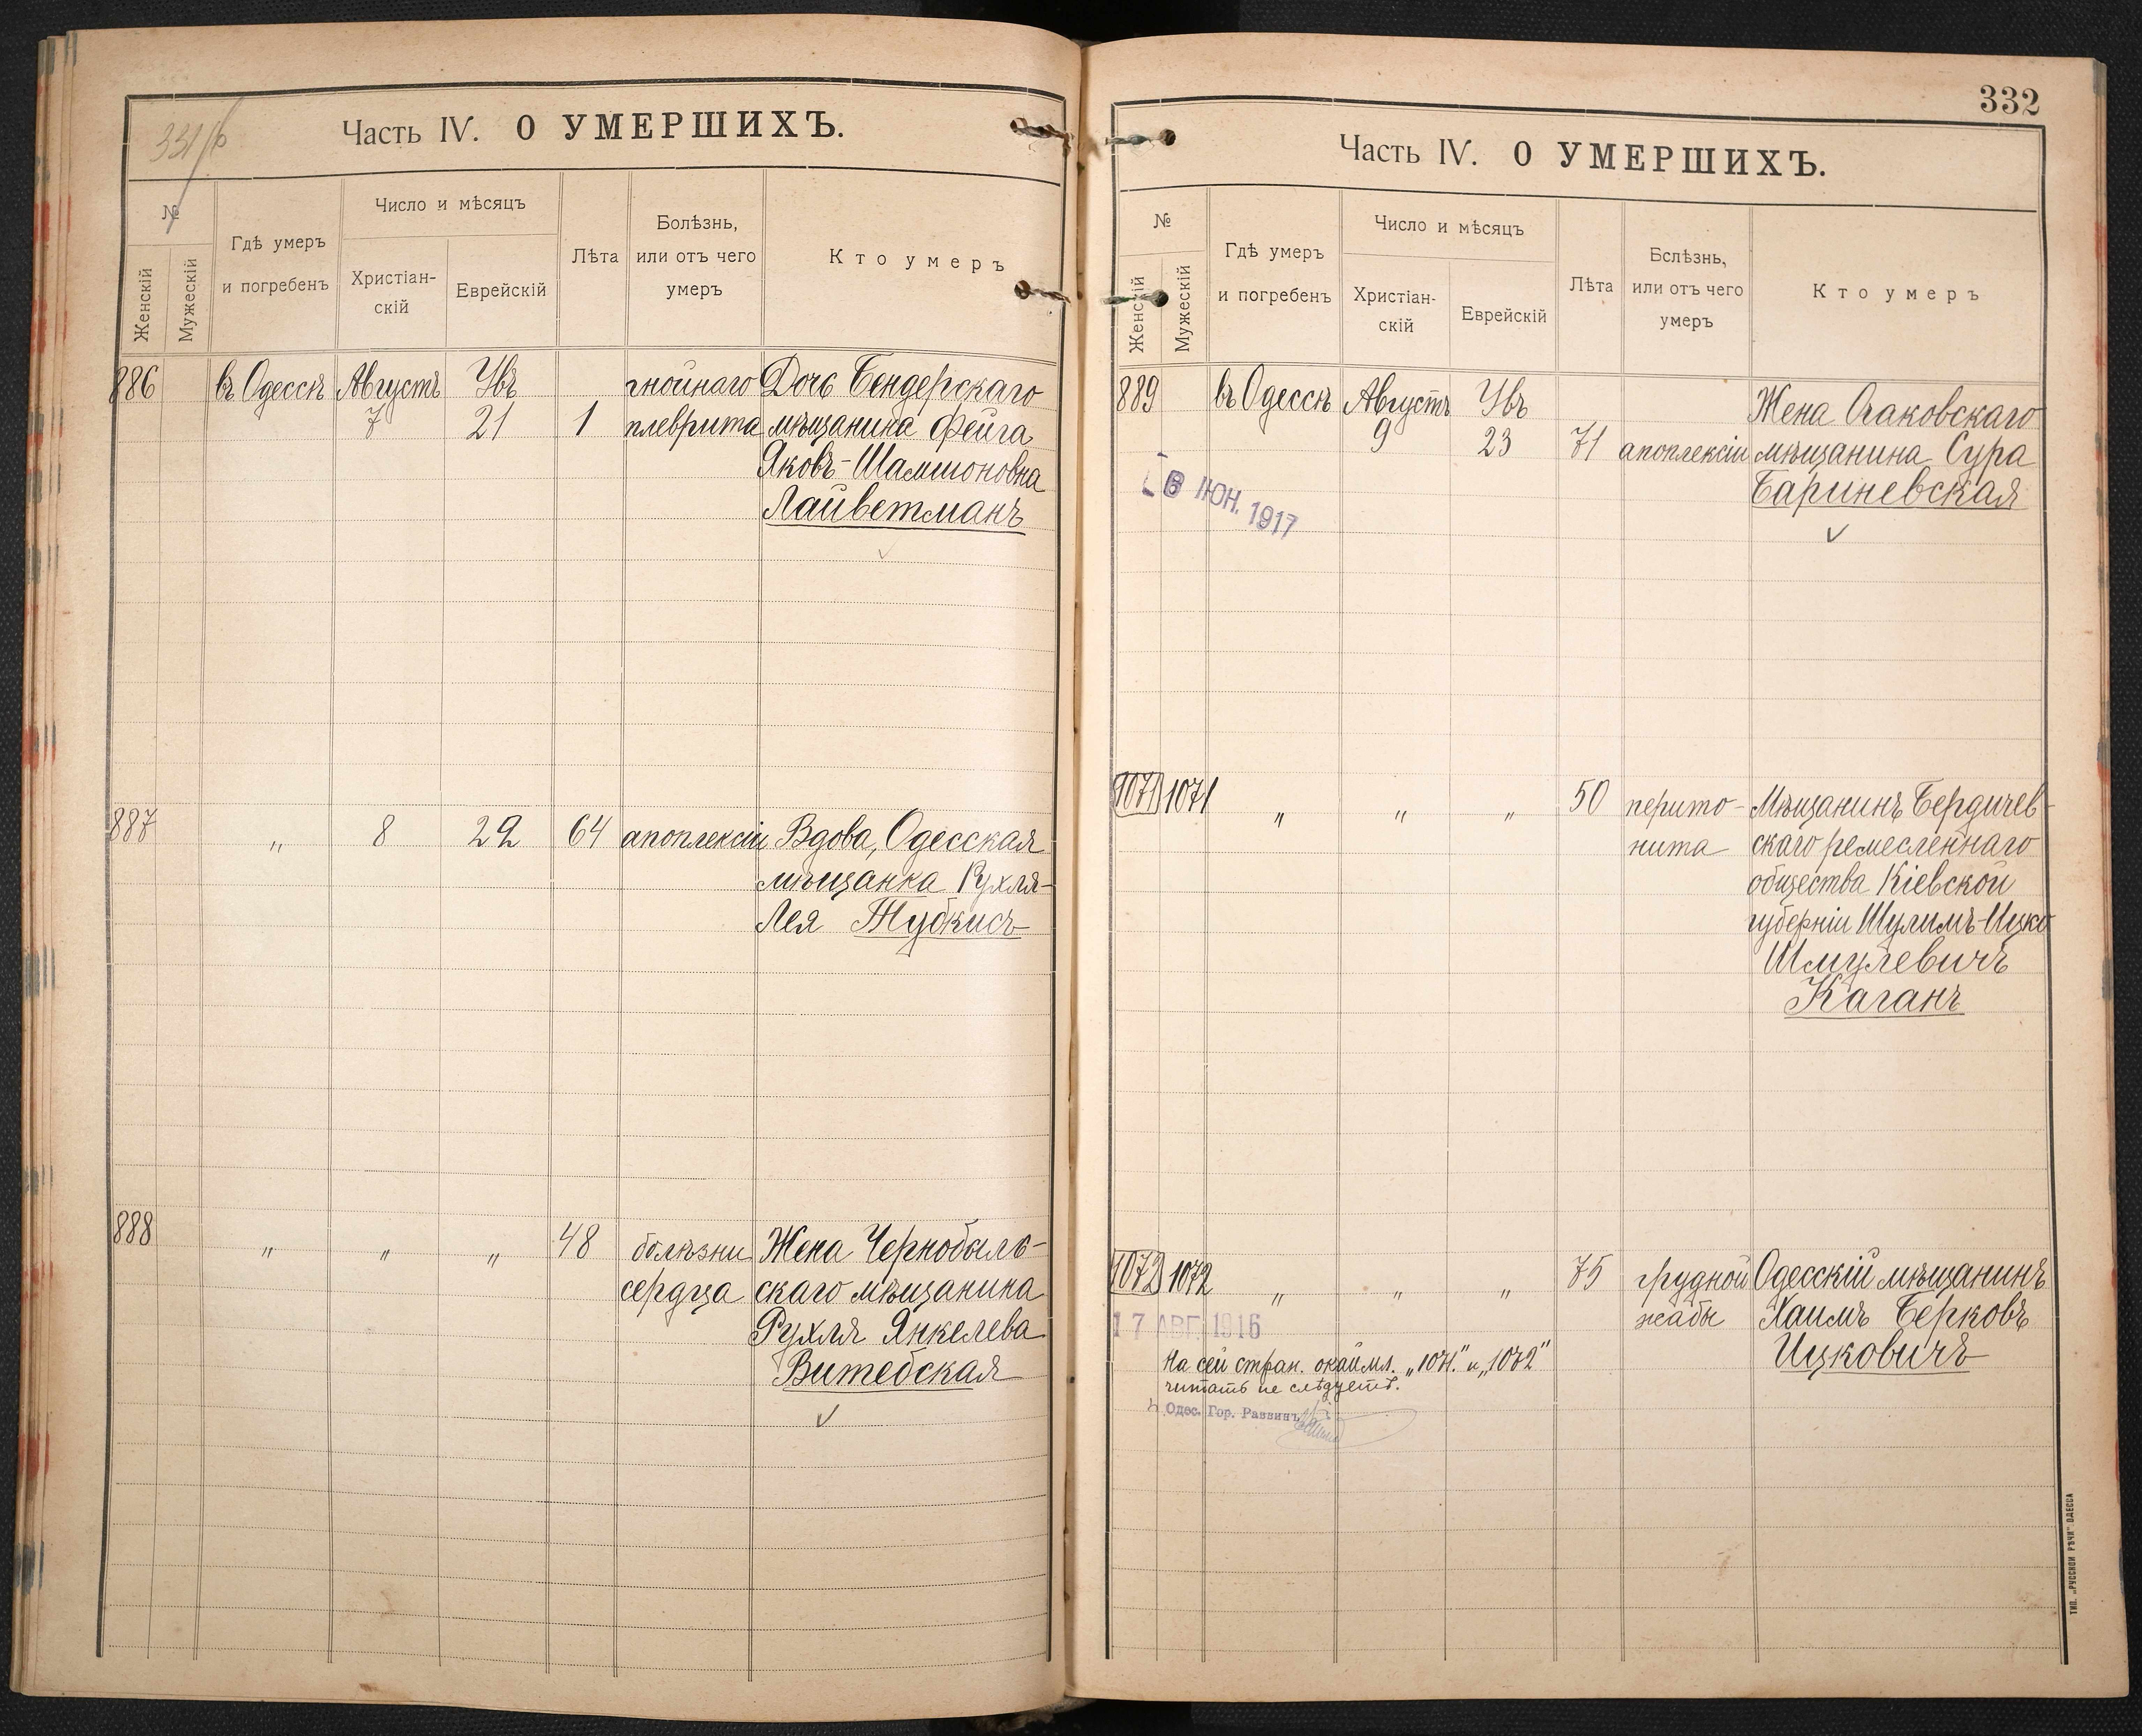 Часть IV. О УМЕРШИХЪ.
№
Женскій
Мужескій
Гдѣ умеръ
и погребенъ
Число и мѣсяцъ
Христіан-
скій
Еврейскій
Лѣта
Болѣзнь,
или отъ чего
умеръ
Кто умеръ
886 въ Одессѣ Августъ Увъ гнойнаго Дочь Бендерскаго
7 21 1 плеврита мѣщанина Фейга
Яковъ-Шамшоновна
Лайветманъ
887 „ 8 22 64 апоплексіи Вдова, Одесская
мѣщанка Рухля-
Лея Тубкисъ
888 „ „ „ 48 болѣзни Жена Чернобыль-
сердца скаго мѣщанина
Рухля Янкелева
Витебская
332
Часть IV. О УМЕРШИХЪ.
№
Женскій
Мужескій
Гдѣ умеръ
и погребенъ
Число и мѣсяцъ
Христіан-
скій
Еврейскій
Лѣта
Бслѣзнь,
или отъ чего
умеръ
Кто умеръ
889 въ Одессѣ Августъ Увъ Жена Очаковскаго
9 23 71 апоплексіи мѣщанина Сура
Бариневская
6 ІЮН. 1917
1071 1071 „ „ „ 50 перито- Мѣщанинъ Бердичев-
нита скаго ремесленнаго
общества Кіевской
губерніи Шулимъ-Ицко
Шмулевичъ
Каганъ
1072 1072 „ „ „ 75 грудной Одесскій мѣщанинъ
жабы Хаимъ Берковъ
Ицковичъ
17 АВГ. 1916
На сей стран. окаймл. „1071" и „1072"
читать не слѣдуетъ.
Одес. Гор. Раввинъ
ТИП. „РУССКОЙ РѢЧИ" ОДЕССА